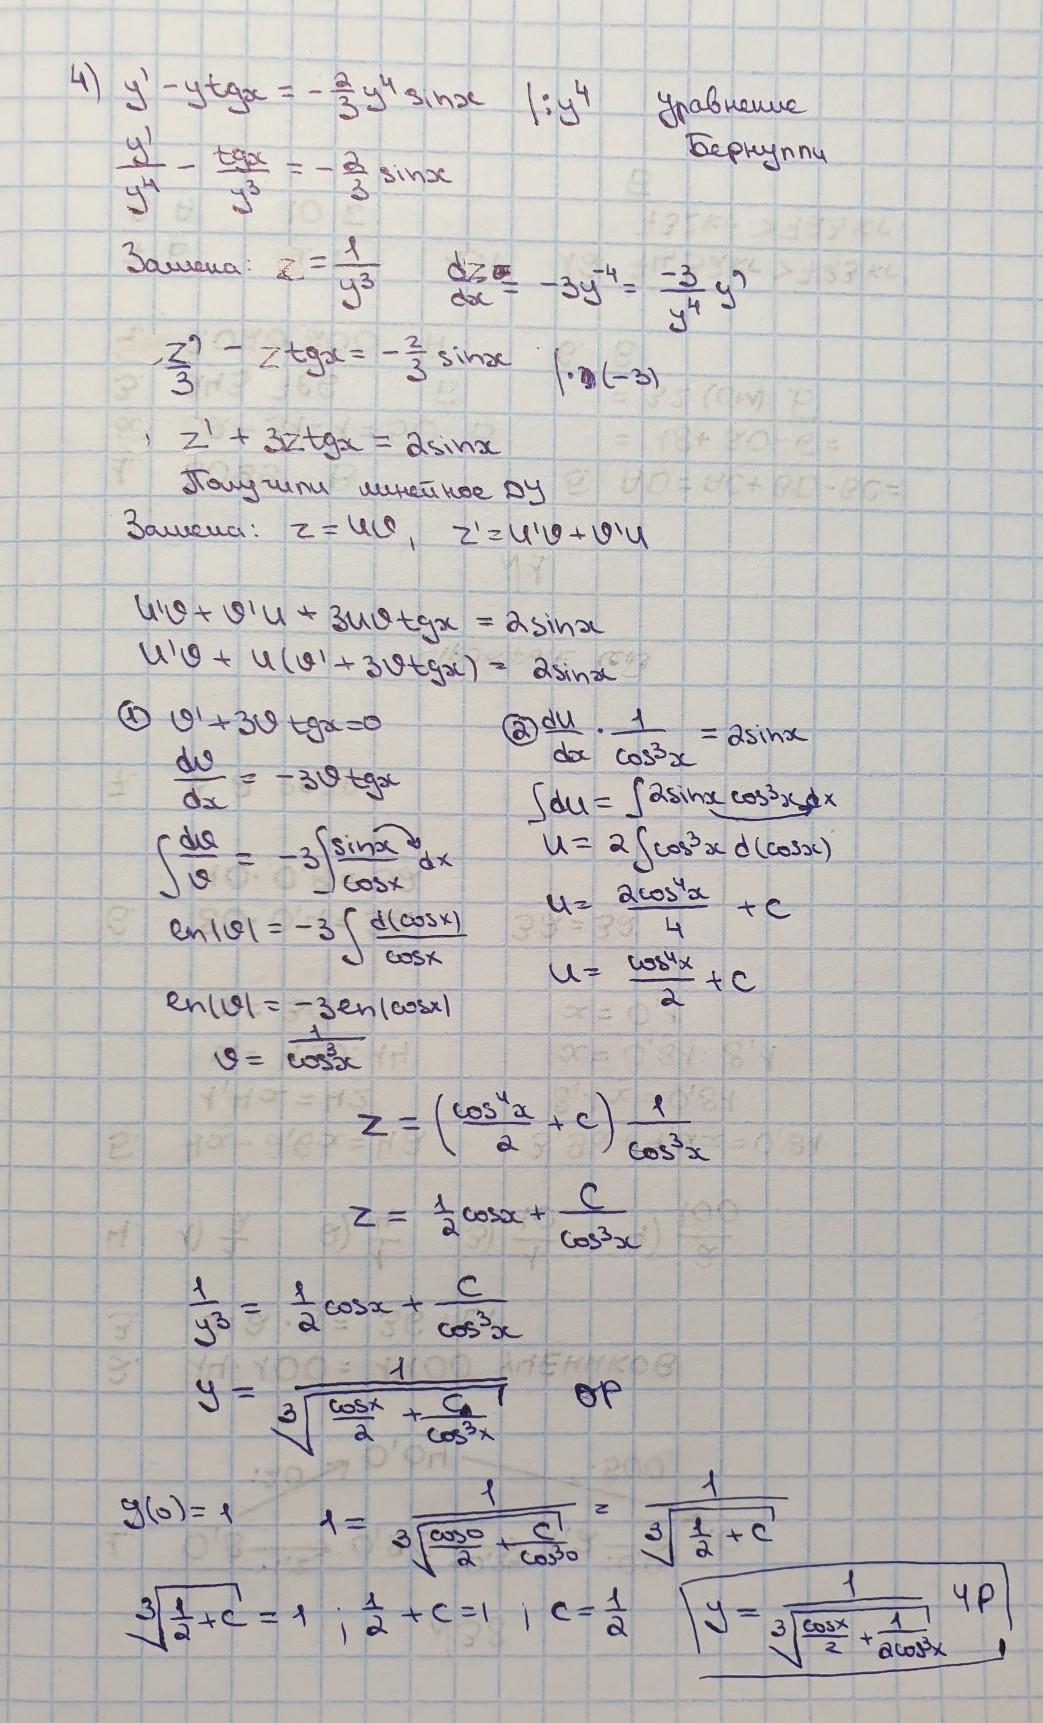 4) y' - ytgx = -2/3 y⁴ sinx |:y⁴ уравнение
Бернулли
y'/y⁴ - tgx/y³ = -2/3 sinx
Замена: z = 1/y³ dz/dx = -3y⁻⁴ = -3/y⁴ y'
z'/3 - ztgx = -2/3 sinx |·(-3)
z' + 3ztgx = 2sinx
Получили линейное ДУ
Замена: z = uv, z' = u'v + v'u
u'v + v'u + 3uvtgx = 2sinx
u'v + u(v' + 3vtgx) = 2sinx
① v' + 3v tgx = 0
dv/dx = -3vtgx
∫ dv/v = -3∫ sinx/cosx dx
ln|v| = -3 ∫ d(cosx)/cosx
ln|v| = -3ln|cosx|
v = 1/cos³x
② du/dx · 1/cos³x = 2sinx
∫du = ∫2sinx cos³x dx
u = 2∫cos³x d(cosx)
u = 2cos⁴x/4 + C
u = cos⁴x/2 + C
z = (cos⁴x/2 + C) 1/cos³x
z = 1/2 cosx + C/cos³x
1/y³ = 1/2 cosx + C/cos³x
y = 1/∛(cosx/2 + C/cos³x) ОР
y(0) = 1 1 = 1/∛(cos0/2 + C/cos³0) = 1/∛(1/2 + C)
∛(1/2 + C) = 1 ; 1/2 + C = 1 ; C = 1/2 y = 1/∛(cosx/2 + 1/2cos³x) ЧР